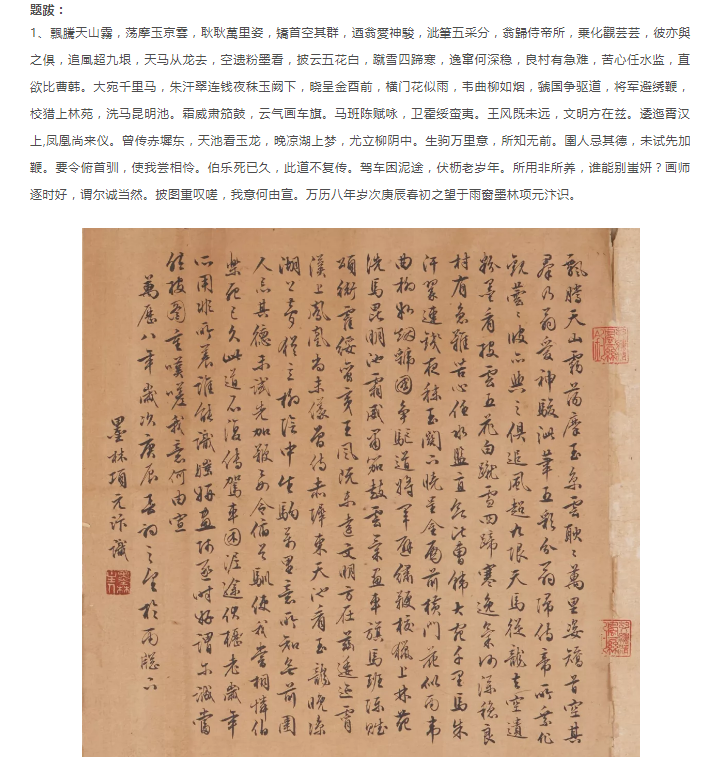 题跋：
1、飄騰天山霧，荡摩玉京雲，耿耿萬里姿，矯首空其群，迺翁愛神駿，泚筆五采分，翁歸侍帝所，椉化觀芸芸，彼亦與
之俱，追風超九垠，天马从龙去，空遗粉墨看，披云五花白，蹴雪四蹄寒，逸窜何深稳，良村有急难，苦心任水监，直
欲比曹韩。大宛千里马，朱汗翠连钱夜秣玉阙下，晓呈金酉前，横门花似雨，韦曲柳如烟，虢国争驱道，将军避绣鞭，
校猎上林苑，洗马昆明池。霜威肃笳鼓，云气画车旗。马班陈赋咏，卫霍绥蛮夷。王风既未远，文明方在兹。逶迤霄汉
上,凤凰尚来仪。曾传赤墀东，天池看玉龙，晚凉湖上梦，尤立柳阴中。生驹万里意，所知无前。圉人忌其德，未试先加
鞭。要令俯首驯，使我尝相怜。伯乐死已久，此道不复传。驾车困泥途，伏枥老岁年。所用非所养，谁能别蚩妍？画师
逐时好，谓尔诚当然。披图重叹嗟，我意何由宣。万历八年岁次庚辰春初之望于雨窗墨林项元汴识。
飄騰天山霜蕩摩玉京雲耿耿萬里姿矯首空其
羣乃翁愛神駿泚筆五彩分翁歸侍帝所乘化
觀芸芸彼亦與之俱追風超九垠天馬從龍去空遺
粉墨看披雲五花白蹴雪四蹄寒逸氣何深穩良
村有急難苦心任水監直欲比曹韓大宛千里馬朱
汗翠連錢夜秣玉闕下曉呈金酉前橫門花似雨韋
曲柳如烟虢國爭驅道將軍避繡鞭校獵上林苑
洗馬昆明池霜威肅笳鼓雲氣畫車旗馬班陳賦
頌衛霍綏蠻夷王風既未遠文明方在茲逶迤霄
漢上鳳凰尚來儀曾傳赤墀東天池看玉龍晚涼
湖上夢猶立柳陰中生駒萬里意所知無前圉
人忌其德未試先加鞭要令俯首馴使我嘗相憐伯
樂死已久此道不復傳駕車困泥途伏櫪老歲年
所用非所養誰能識媸妍畫師逐時好謂尔誠當
然披圖重嘆嗟我意何由宣
萬曆八年歲次庚辰春初之望於雨牕下
墨林項元汴識